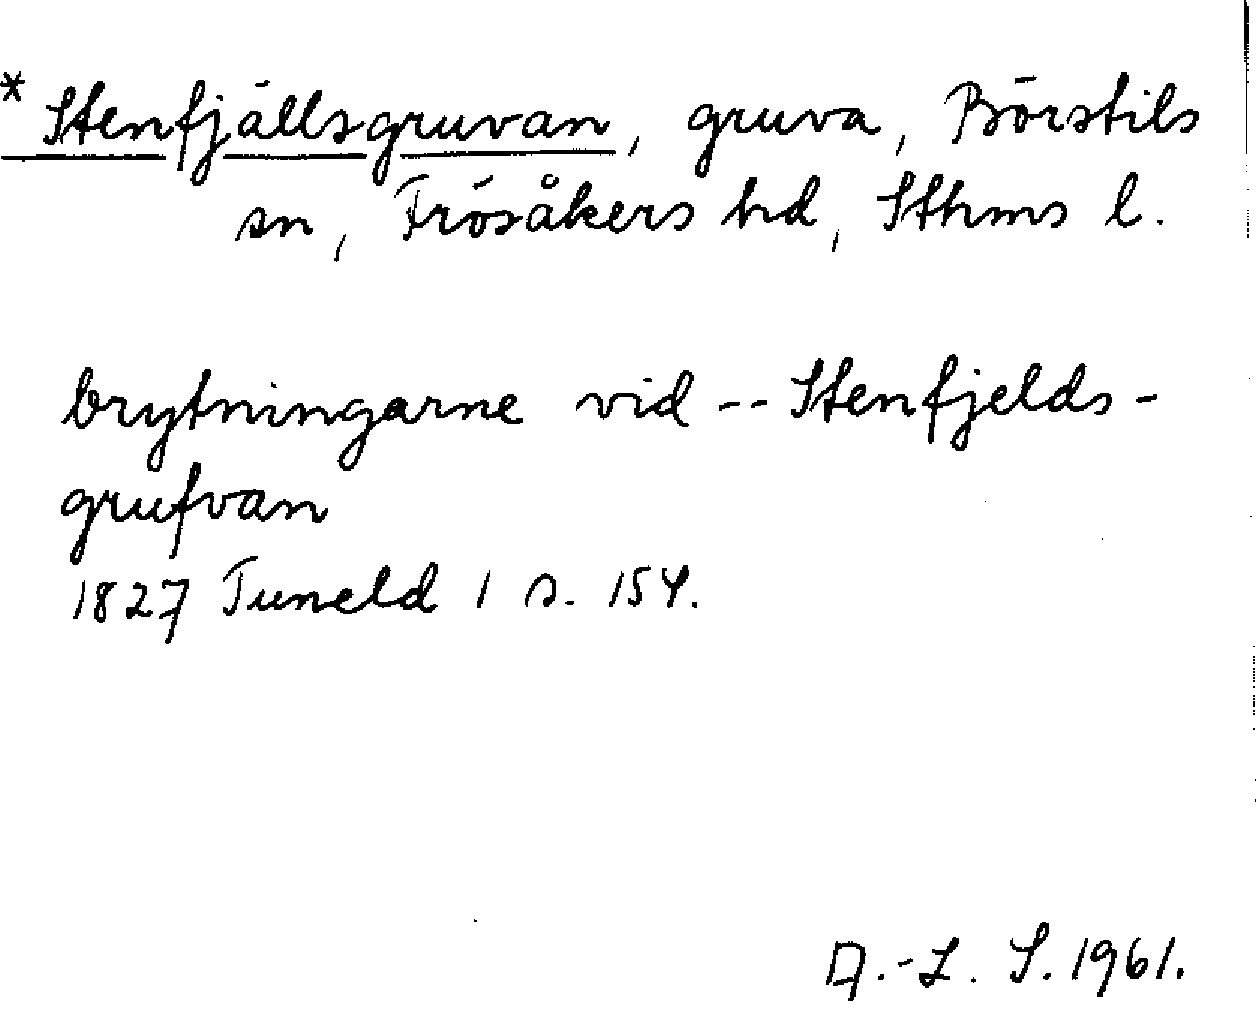 * Stenfjällsgruvan, gruva, Börstils
sn, Frösåkers hd, Sthms l.
brytningarne vid -- Stenfjelds-
grufvan
1827 Tuneld 1 s. 154.
A.-L. S. 1961.